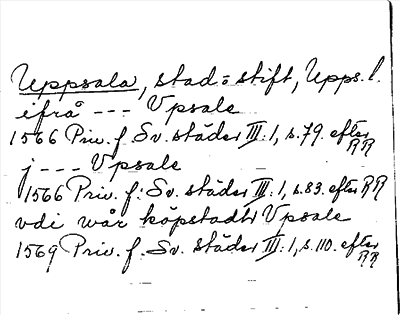 Uppsala, stad o. stift, Upps. l.
ifrå --- Vpsale
1566 Priv. f. Sv. städer III: 1, s. 79. efter RR
j --- Vpsale
1566 Priv. f. Sv. städer III: 1, s. 83. efter RR
vdi wår köpstadt Vpsale
1569 Priv. f. Sv. städer III: 1, s. 110. efter RR